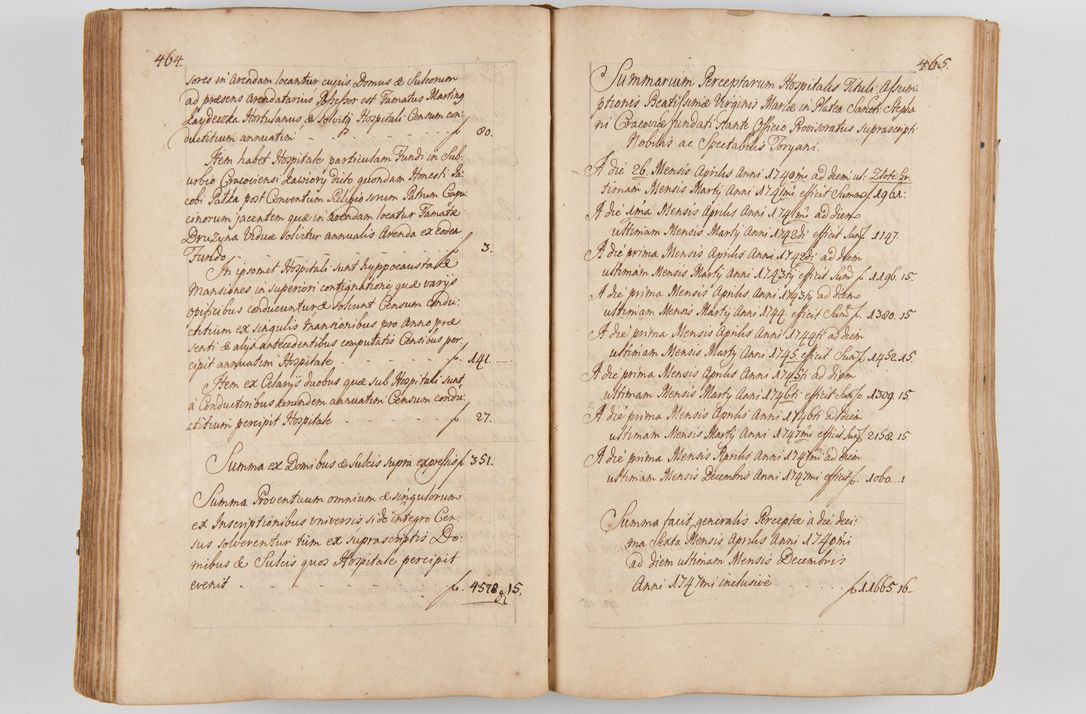 464.
sores in Arendam locantur cujus Domus & Sulcorum
ad præsens Arendatarius Possessor est Famatus Marting
Hortulanus & solvitq Hospitali Censum con
ductitium annuatim f. 80.
Item habet Hospitale particulam Fundi in Sub,
urbio Cracoviensi dicto quondam Honesti Ja,
cobi Patka post Conventum Religiosorum Patrum Capu
cinorum jacentem quæ in Arendam locatur Famatæ
Druzyna Viduæ solvitur annualis Arenda ex eodem
Fundo f. 3.
In ipsomet Hospitali sunt Hyppocausta &
Mansiones in superiori contignatione quæ varÿs
opificibus conducuntur & solvunt Censum condu:
ctitium ex singulis mansionibus pro Anno præ
senti & alÿs antecedentibus computatis Censibus per
cipit annuatim Hospitale f. 141.
Item ex Celarÿs duobus quæ sub Hospitali sunt
à Conductoribus eorundem annuatim Censum condu,
ctitium percipit Hospitale f. 27.
Summa ex Domibus & Sulcis supra expressis f. 351.
Summa Proventuum omnium & singulorum
ex Inscriptionibus universis si de integro Cen:
sus solverentur tum ex suprascriptis Do:
mibus & Sulcis quos Hospitale percipit
evenit f. 4578 15.
465.
Summarium Perceptarum Hospitalis Tituli Assum
ptionis Beatissimæ Virginis Mariæ in Platea Sancti Stepha
ni Cracoviæ fundati stante Officio Provisoratus suprascripti
Nobilis ac Spectabilis Toryani.
A die 26. Mensis Aprilis Anni 1740mi ad diem ul:
timam Mensis Martÿ Anni 1741mi efficit Summa f. 1961:
A die 1ma Mensis Aprilis Anni 1741mi ad diem
ultimam Mensis Martÿ Anni 1742di efficit Sum f. 1147.
A die prima Mensis Aprilis Anni 1742di ad diem
ultimam Mensis Martÿ Anni 1743tÿ efficit Sum f. 1196. 15.
A die prima Mensis Aprilis Anni 1743tÿ ad diem
ultimam Mensis Martÿ Anni 1744. efficit Sum f. 1380. 15
A die prima Mensis Aprilis Anni 1744ti ad diem
ultimam Mensis Martÿ Anni 1745 efficit Sum f. 1452 15.
A die prima Mensis Aprilis Anni 1745ti ad diem
ultimam Mensis Martÿ Anni 1746ti efficit Sum f. 1309. 15
A die prima Mensis Aprilis Anni 1746ti ad diem
ultimam Mensis Martÿ Anni 1747mi efficit Sum f. 2158. 15
A die prima Mensis Aprilis Anni 1747mi ad diem
ultimam Mensis Decembris Anni 1747mi efficit f. 1060. 1
Summa facit generalis Perceptæ à die deci:
ma sexta Mensis Aprilis Anni 1740mi
ad diem ultimam Mensis Decembris
Anni 1747mi inclusive f. 11665. 16.